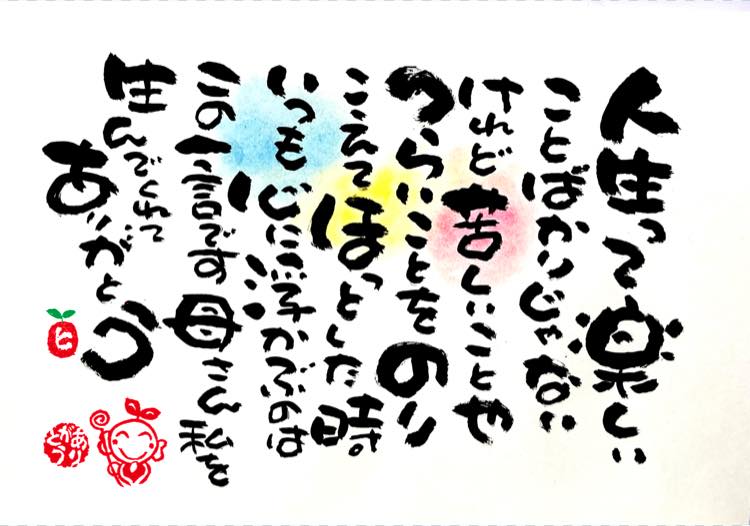 人生って楽しい
ことばかりじゃない
けれど苦しいことや
つらいことをのり
こえてほっとした時
いつも心に浮かぶのは
この一言です母さん私を
生んでくれて
ありがとう
ヒ
ありがとう